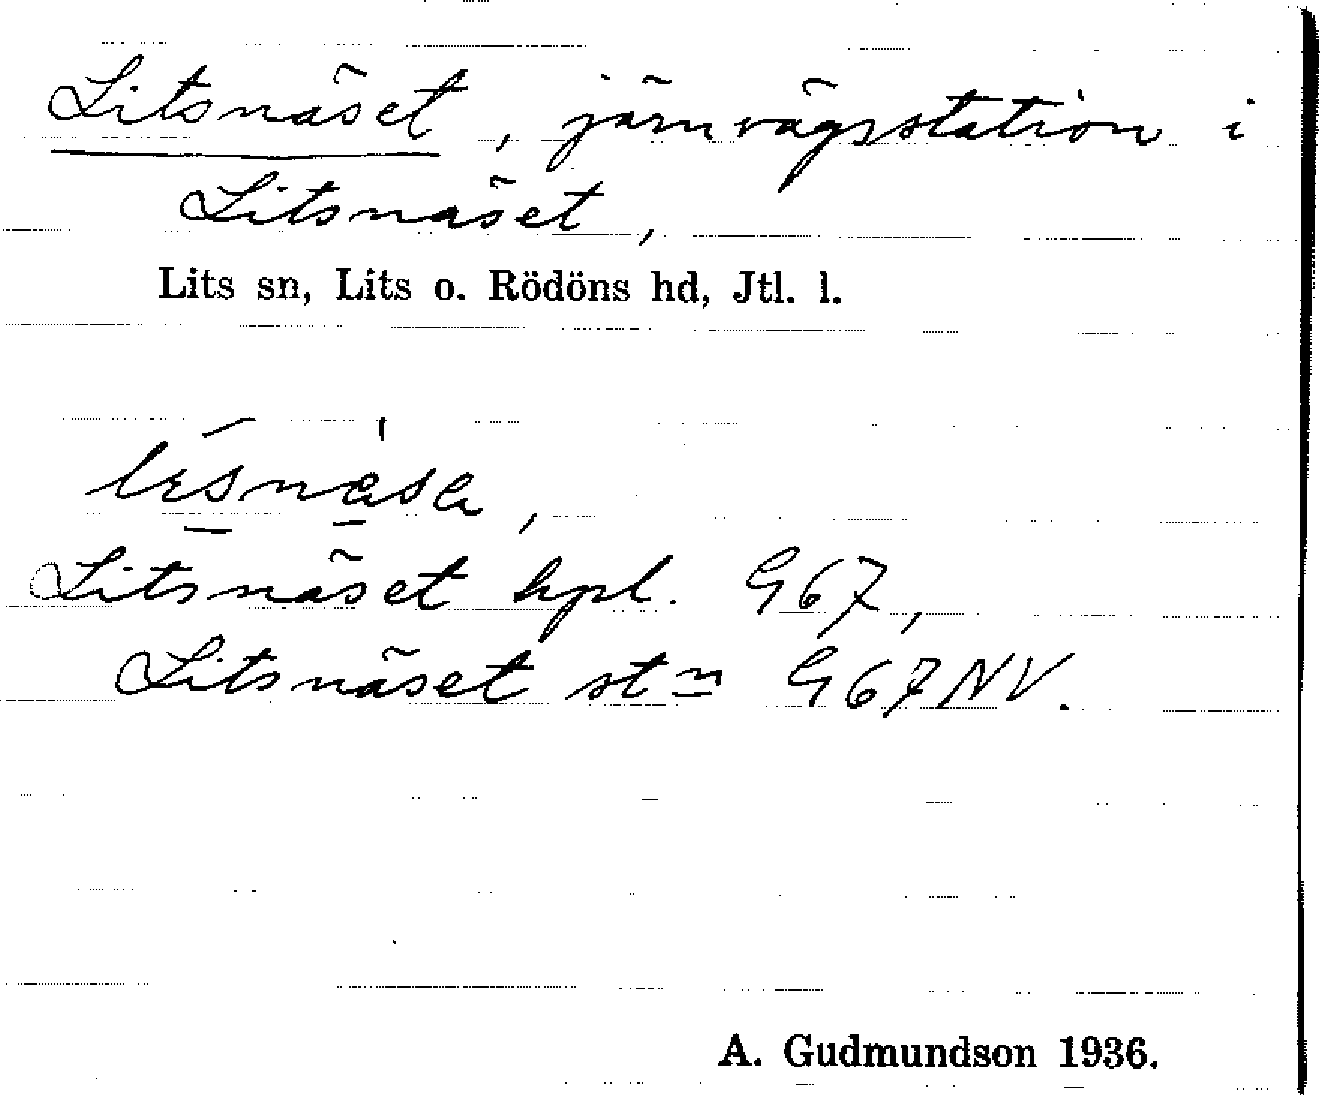 Litsnäset, järnvägsstation i
Litsnäset,
Lits sn, Lits o. Rödöns hd, Jtl. l.
Litsnäset hpl. G67,
Litsnäset stn G67NV.
A. Gudmundson 1936.